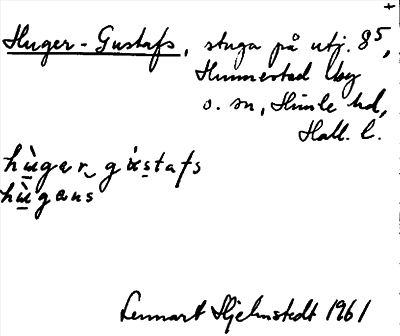 +
Huger-Gustafs, stuga på utj. 8⁵,
Hunnestad by
o. sn, Himle hd,
Hall. l.
hù̠gar‿gú̠s̠tafs
hù̠gans
Lennart Hjelmstedt 1961